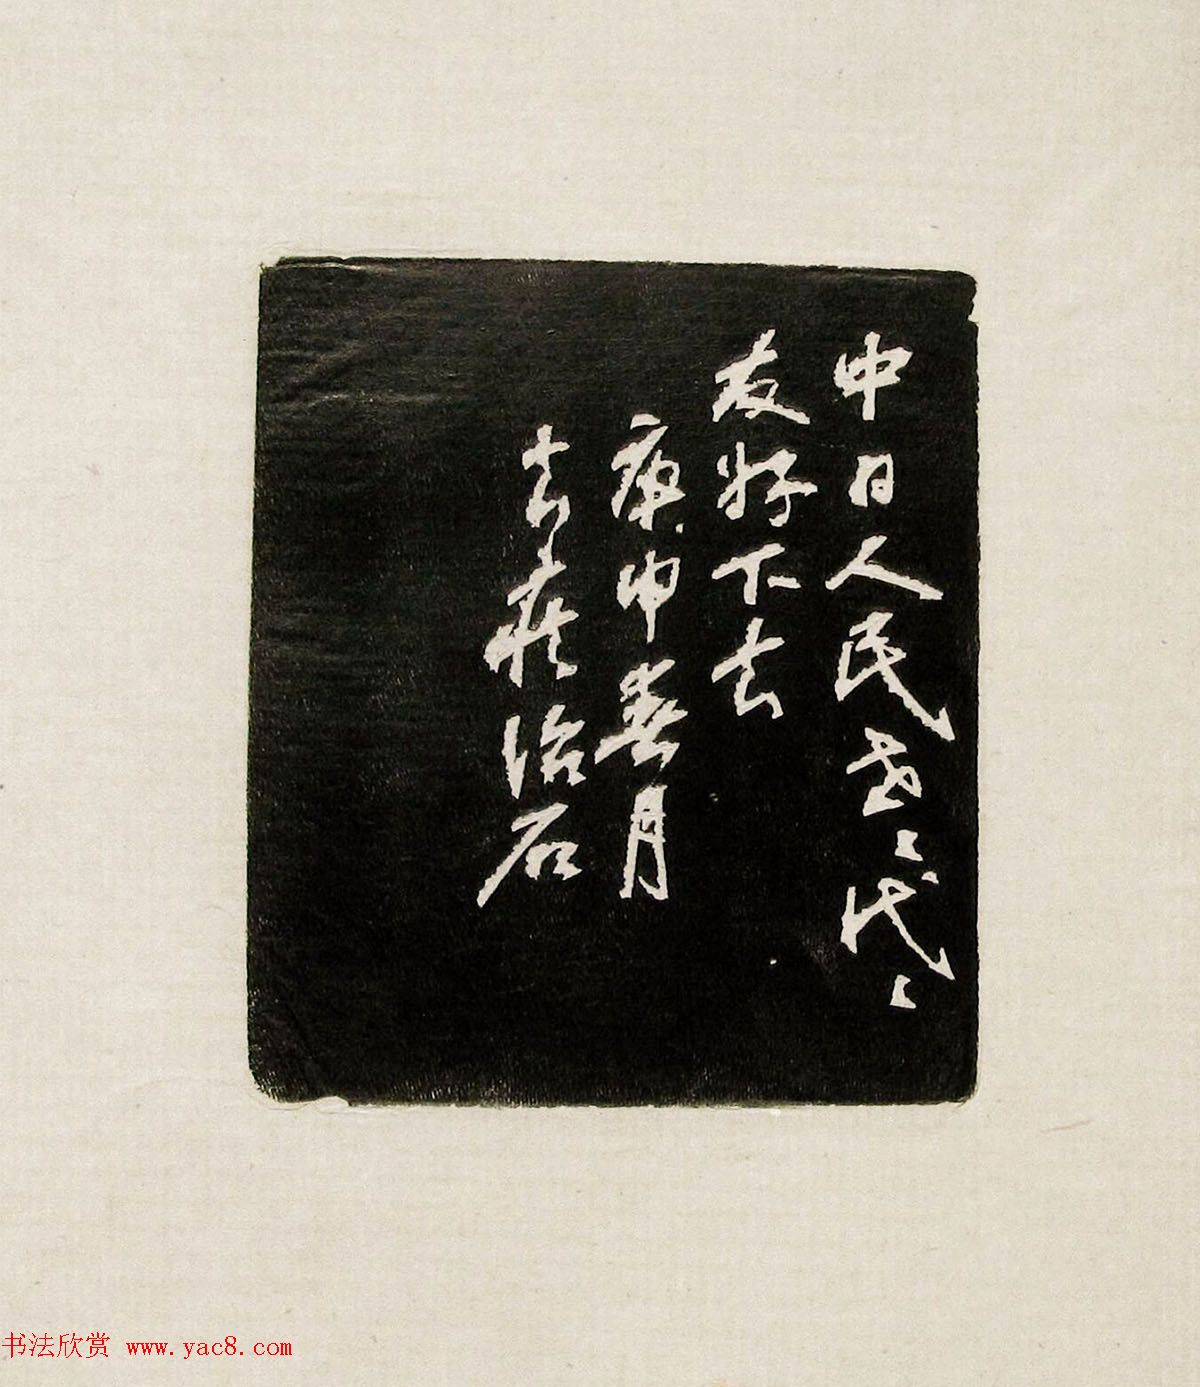 中日人民世々代々
友好下去
庚申春月
去疾治石
书法欣赏 www.yac8.com